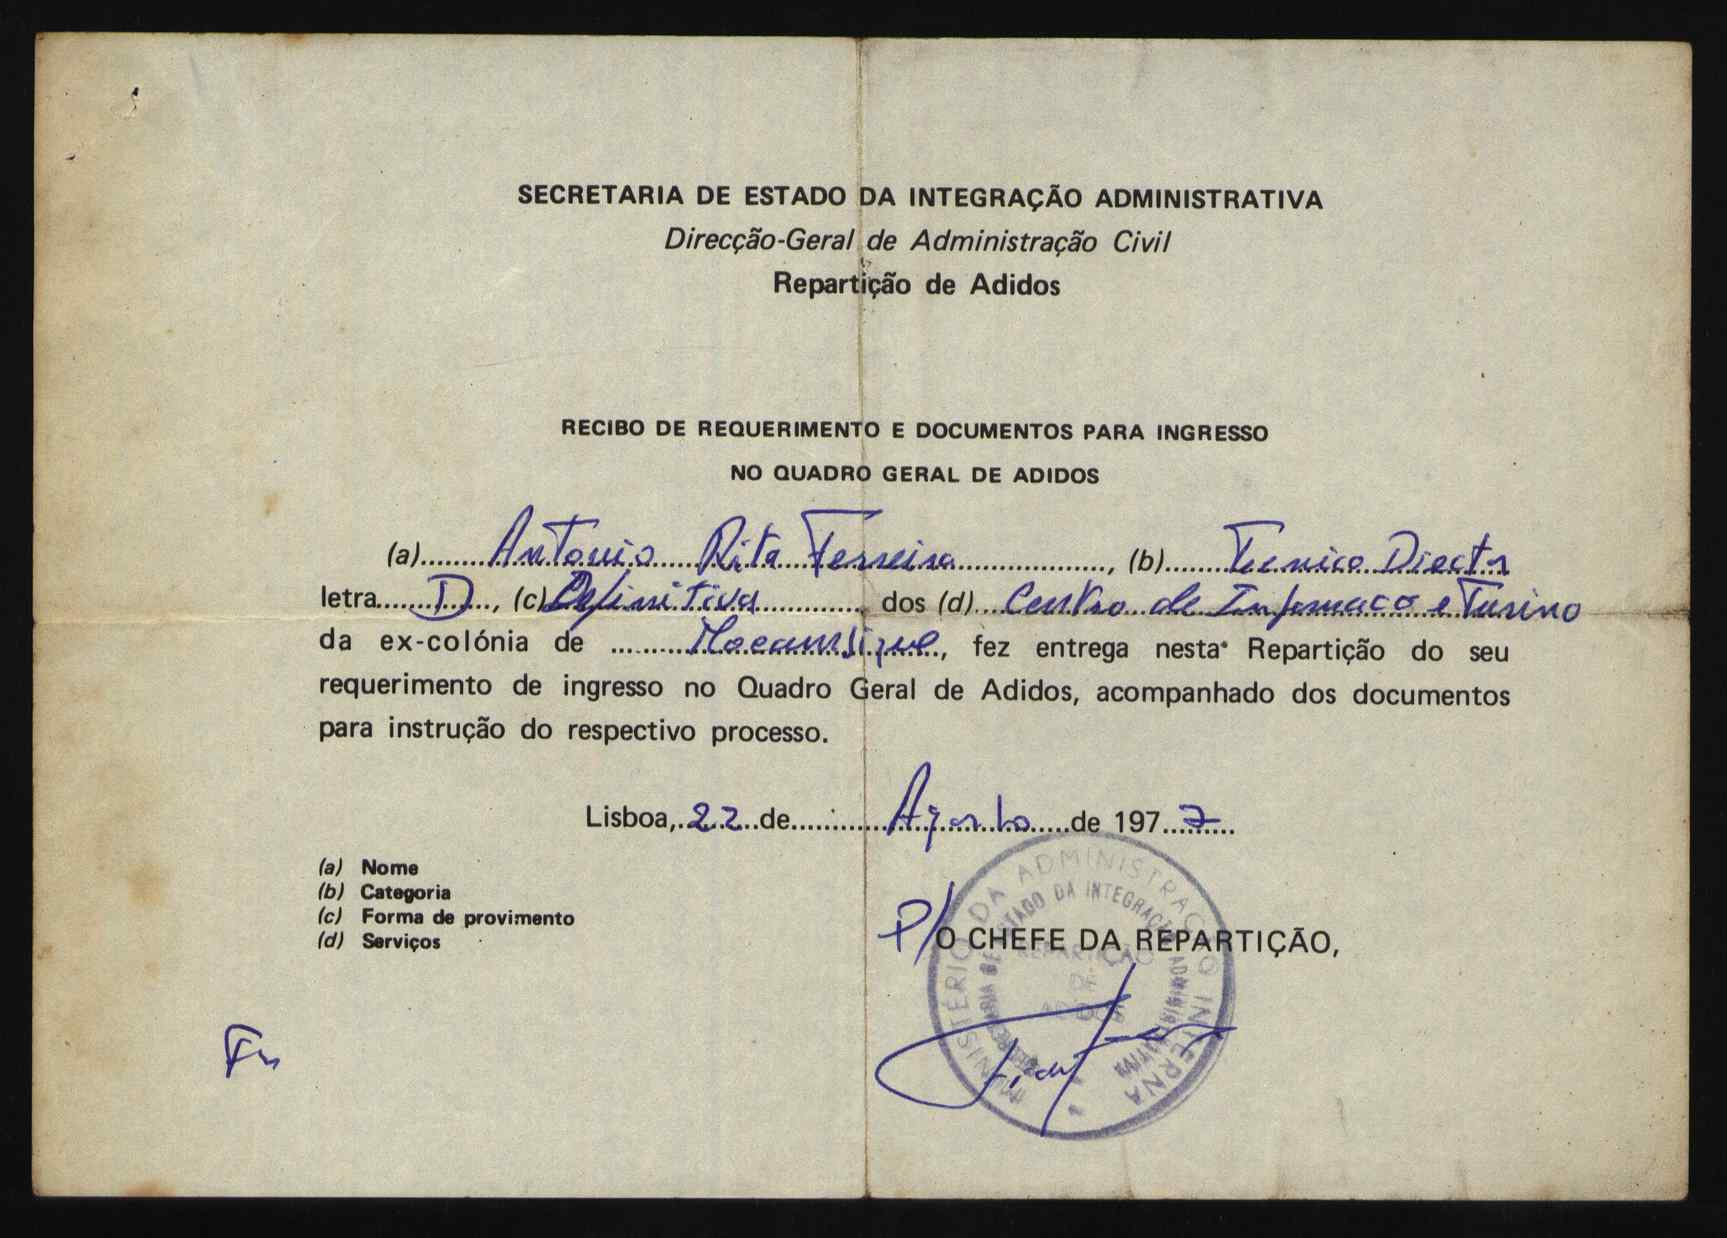 SECRETARIA DE ESTADO DA INTEGRAÇÃO ADMINISTRATIVA
Direcção-Geral de Administração Civil
Repartição de Adidos
RECIBO DE REQUERIMENTO E DOCUMENTOS PARA INGRESSO
NO QUADRO GERAL DE ADIDOS
(a) Antonio Rita Ferreira, (b) Tecnico Director
letra D, (c) Definitiva dos (d) Centro de Informacao e Turismo
da ex-colónia de Mocambique, fez entrega nesta Repartição do seu
requerimento de ingresso no Quadro Geral de Adidos, acompanhado dos documentos
para instrução do respectivo processo.
Lisboa, 22 de Agosto de 1977
(a) Nome
(b) Categoria
(c) Forma de provimento
(d) Serviços
P/ O CHEFE DA REPARTIÇÃO,
MINISTÉRIO DA ADMINISTRAÇÃO INTERNA
SECRETARIA DE ESTADO DA INTEGRAÇÃO ADMINISTRATIVA
REPARTIÇÃO